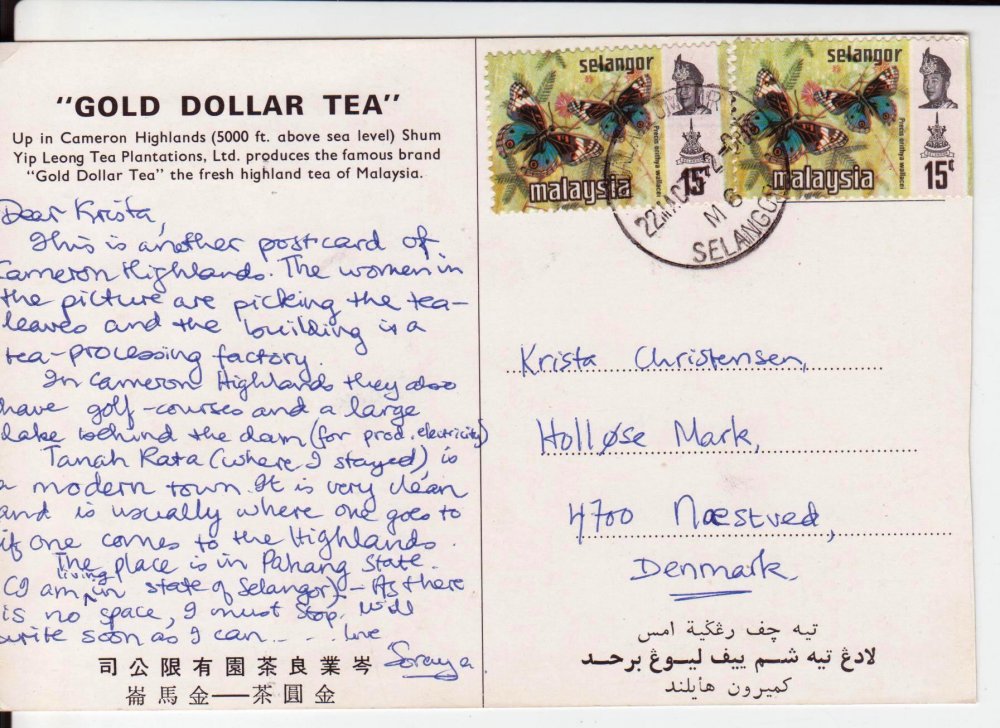 "GOLD DOLLAR TEA"
Up in Cameron Highlands (5000 ft. above sea level) Shum
Yip Leong Tea Plantations, Ltd. produces the famous brand
"Gold Dollar Tea" the fresh highland tea of Malaysia.
Dear Krista,
This is another postcard of
Cameron Highlands. The women in
the picture are picking the tea-
leaves and the building is a
tea-processing factory.
In Cameron Highlands they also
have golf-courses and a large
lake behind the dam (for prod. electricity)
Tanah Rata (where I stayed) is
a modern town. It is very clean
and is usually where one goes to
if one comes to the Highlands.
The place is in Pahang State.
(I am living in state of Selangor) - As there
is no space, I must stop. Will
write soon as I can... . love
Soraya
岑業良茶園有限公司
金圓茶——金馬崙
selangor
Precis orithya wallacei
malaysia 15¢
selangor
Precis orithya wallacei
malaysia 15¢
22 MAC
M 6
SELANGOR
Krista Christensen,
Holløse Mark,
4700 Næstved,
Denmark.
تيه چف رڠݢية امس
لادڠ تيه شم ييف ليوڠ برحد
كميرون هايلند